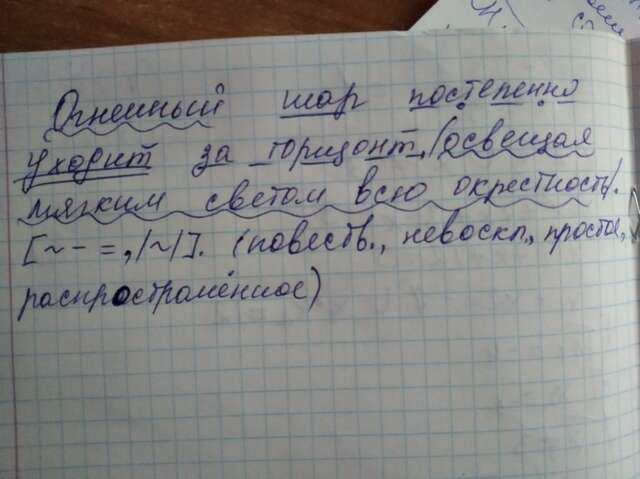 Огненный шар постепенно
уходит за горизонт, /освещая
мягким светом всю окрестность/.
[~ - =, /~/]. (повеств., невоскл., простое,
распространённое)